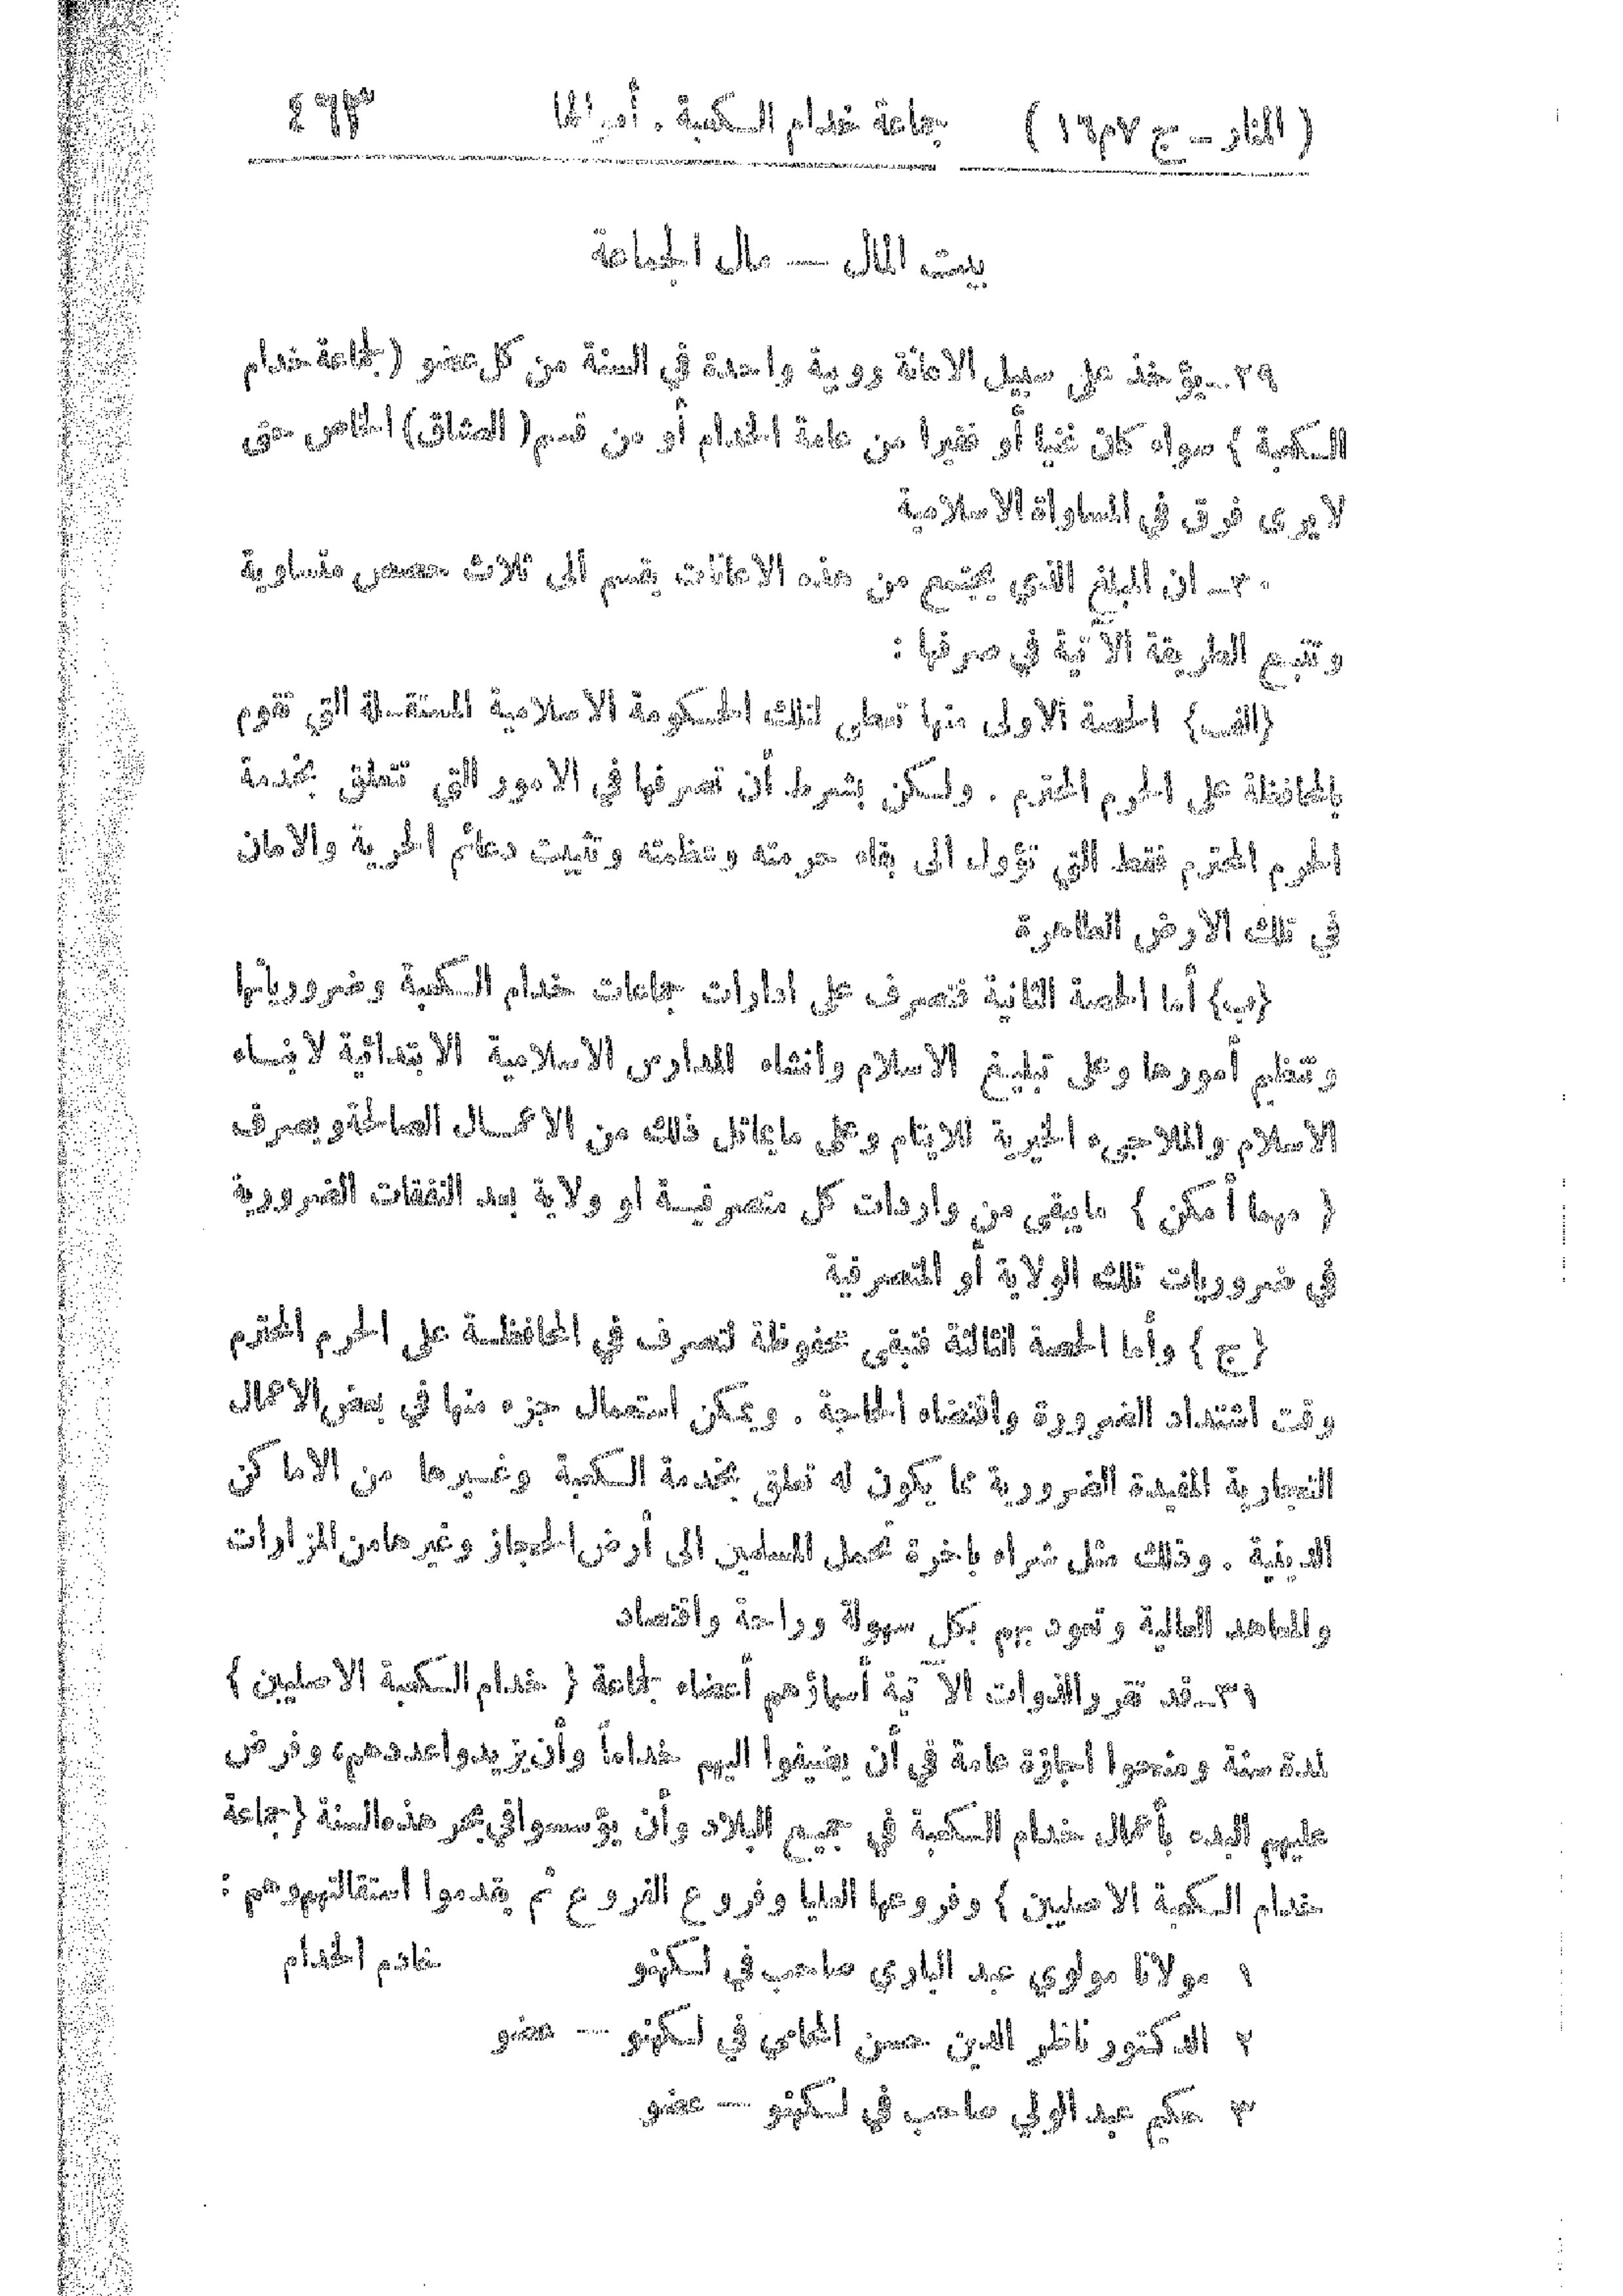 ( المنار – ج ٧ م ١٦ ) جماعة خدام الكعبة . أموالها ٤٦٣
بيت المال — مال الجماعة
٢٩ – يؤخذ على سبيل الاعانة روبية واحدة في السنة من كل عضو ( بجماعة خدام
الكعبة } سواء كان غنيا أو فقيرا من عامة الخدام أو من قسم ( العشاق ) الخاص حتى
لا يرى فرق في المساواة الاسلامية
٣٠ – ان المبلغ الذي يجتمع من هذه الاعانات يقسم الى ثلاث حصص متساوية
وتتبع الطريقة الآتية في صرفها :
{الف} الحصة الاولى منها تعطى لتلك الحكومة الاسلامية المستقلة التي تقوم
بالمحافظة على الحرم المحترم . ولكن بشرط أن تصرفها في الامور التي تتعلق بخدمة
الحرم المحترم فقط التي تؤول الى بقاء حرمته وعظمته وتثبيت دعائم الحرية والامان
في تلك الارض الطاهرة
{ب} أما الحصة الثانية فتصرف على ادارات جماعات خدام الكعبة وضرورياتها
وتنظيم أمورها وعلى تبليغ الاسلام وانشاء المدارس الاسلامية الابتدائية لابناء
الاسلام والملاجىء الخيرية للايتام وعلى مايماثل ذلك من الاعمال الصالحة ويصرف
{ مهما أمكن } مايبقى من واردات كل متصرفية او ولاية بعد النفقات الضرورية
في ضروريات تلك الولاية أو المتصرفية
{ ج } وأما الحصة الثالثة فتبقى محفوظة لتصرف في المحافظة على الحرم المحترم
وقت اشتداد الضرورة واقتضاء الحاجة . ويمكن استعمال جزء منها في بعض الاعمال
التجارية المفيدة الضرورية مما يكون له تعلق بخدمة الكعبة وغيرها من الاماكن
الدينية . وذلك مثل شراء باخرة تحمل المسلمين الى أرض الحجاز وغيرها من المزارات
والمعاهد العالية وتعود بهم بكل سهولة وراحة واقتصاد
٣١ – قد تقرر والذوات الآتية أسماؤهم أعضاء بجماعة { خدام الكعبة الاصليين }
لمدة سنة ومنحوا اجازة عامة في أن يضيفوا اليهم خداماً وأن يزيدوا عددهم، وفرض
عليهم البدء بأعمال خدام الكعبة في جميع البلاد وأن يؤسسوا في بحر هذه السنة { جماعة
خدام الكعبة الاصليين } وفروعها العليا وفروع الفروع ثم يقدموا استقالتهم وهم :
١ مولانا مولوي عبد الباري صاحب في لكهنو خادم الخدام
٢ الدكتور ناظر الدين حسن المحامي في لكهنو — عضو
٣ حكيم عبد الولي صاحب في لكهنو — عضو